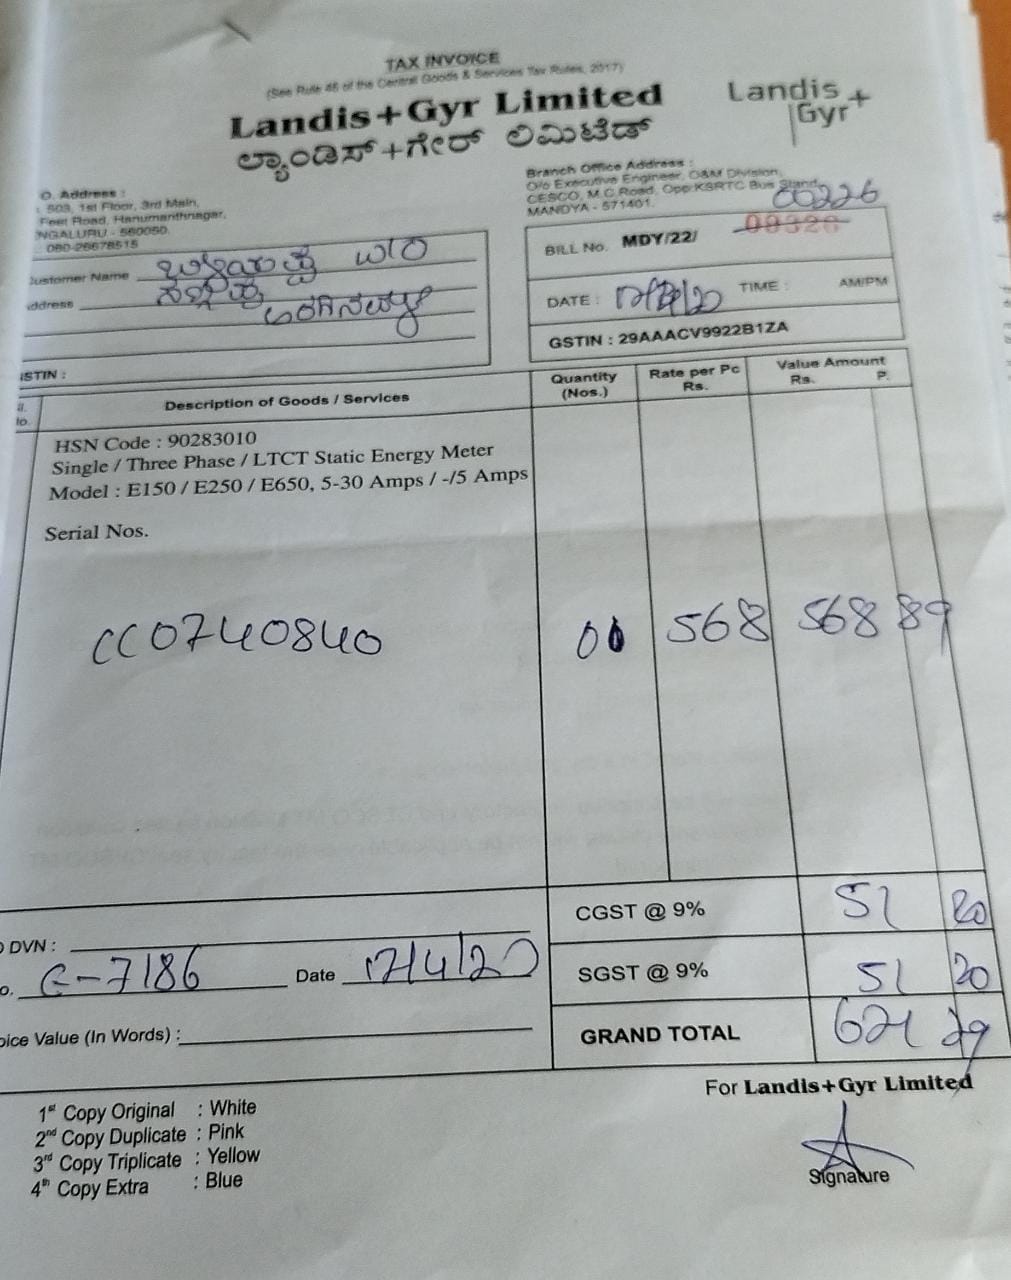 TAX INVOICE
(See Rule 46 of the Central Goods & Services Tax Rules, 2017)
Landis+Gyr Limited
ಲ್ಯಾಂಡಿಸ್+ಗೇರ್ ಲಿಮಿಟೆಡ್
Landis
Gyr+
O. Address :
503, 1st Floor, 3rd Main,
Feet Road, Hanumanthnagar,
NGALURU - 560050.
080-26678515
Branch Office Address :
O/o Executive Engineer, O&M Division,
CESCO, M.C.Road, Opp:KSRTC Bus Stand,
MANDYA - 571401.
00226
BILL No. MDY/22/
ustomer Name W/O
ddress
DATE : TIME : AM/PM
GSTIN : 29AAACV9922B1ZA
STIN :
Description of Goods / Services
Quantity (Nos.)
Rate per Pc Rs.
Value Amount Rs. P.
HSN Code : 90283010
Single / Three Phase / LTCT Static Energy Meter
Model : E150 / E250 / E650, 5-30 Amps / -/5 Amps
Serial Nos.
CC0740840 568 568 89
CGST @ 9% 51 20
DVN :
SGST @ 9% 51 20
o. G-7186 Date 17/4/20
oice Value (In Words) :
GRAND TOTAL
For Landis+Gyr Limited
1st Copy Original : White
2nd Copy Duplicate : Pink
3rd Copy Triplicate : Yellow
4th Copy Extra : Blue
Signature